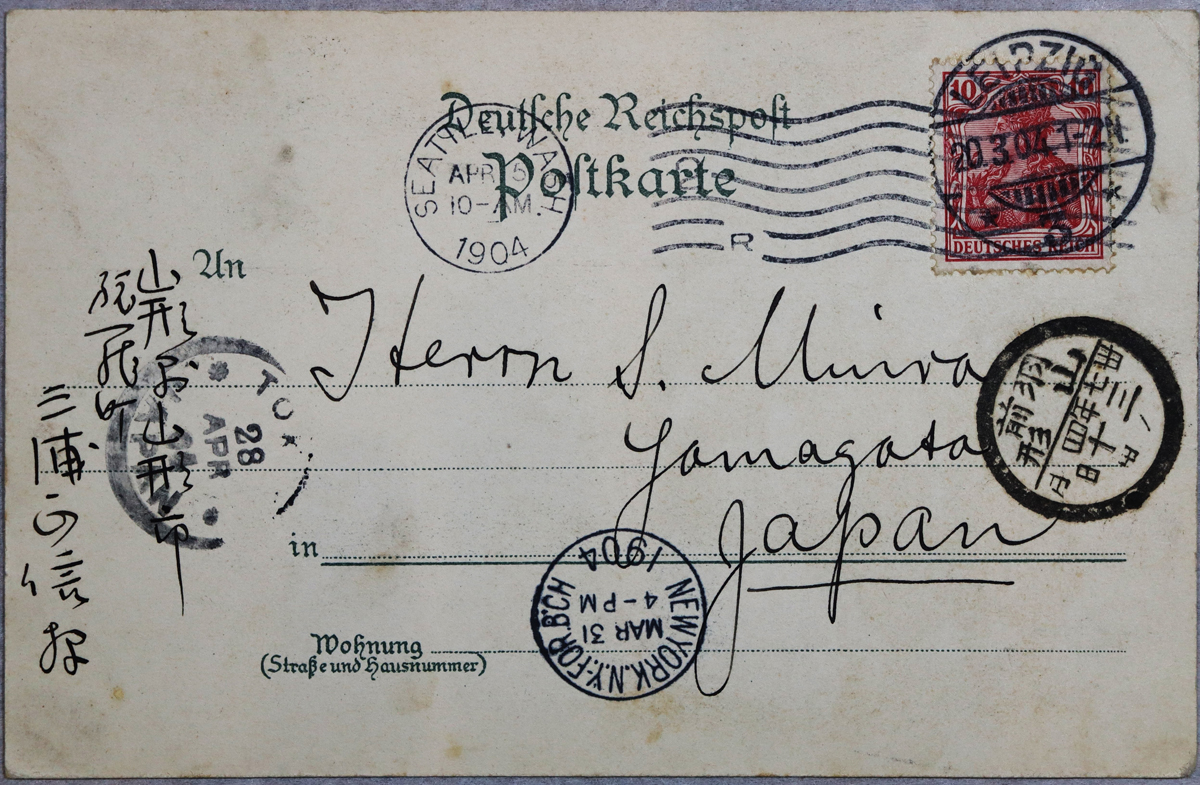 Deutsche Reichspost
Postkarte
SEATTLE, WASH.
APR 5
10-AM
1904
R
LEIPZIG
20.3.04. 1-2N.
* 3 *
10 10
DEUTSCHES REICH
An
Herrn S. Miura
Yamagata
in Japan
Wohnung
(Straße und Hausnummer)
山形县山形市
旅篭町
三浦
NEW YORK, N.Y.-FOR. B'CH
MAR 31
4-PM
1904
TOK
28
APR
JAPAN
羽前
山形
四十
年
月
日